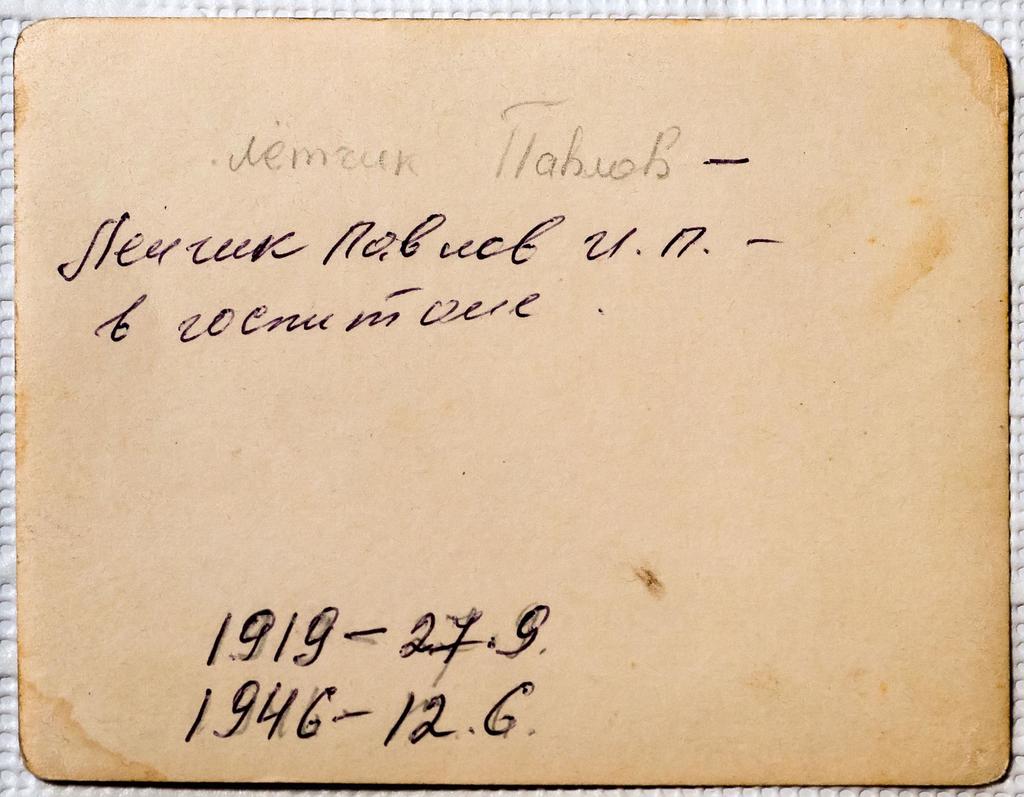 лётчик Павлов –
Летчик Павлов И.П. –
в госпитале.
1919 – 27.9.
1946 – 12.6.